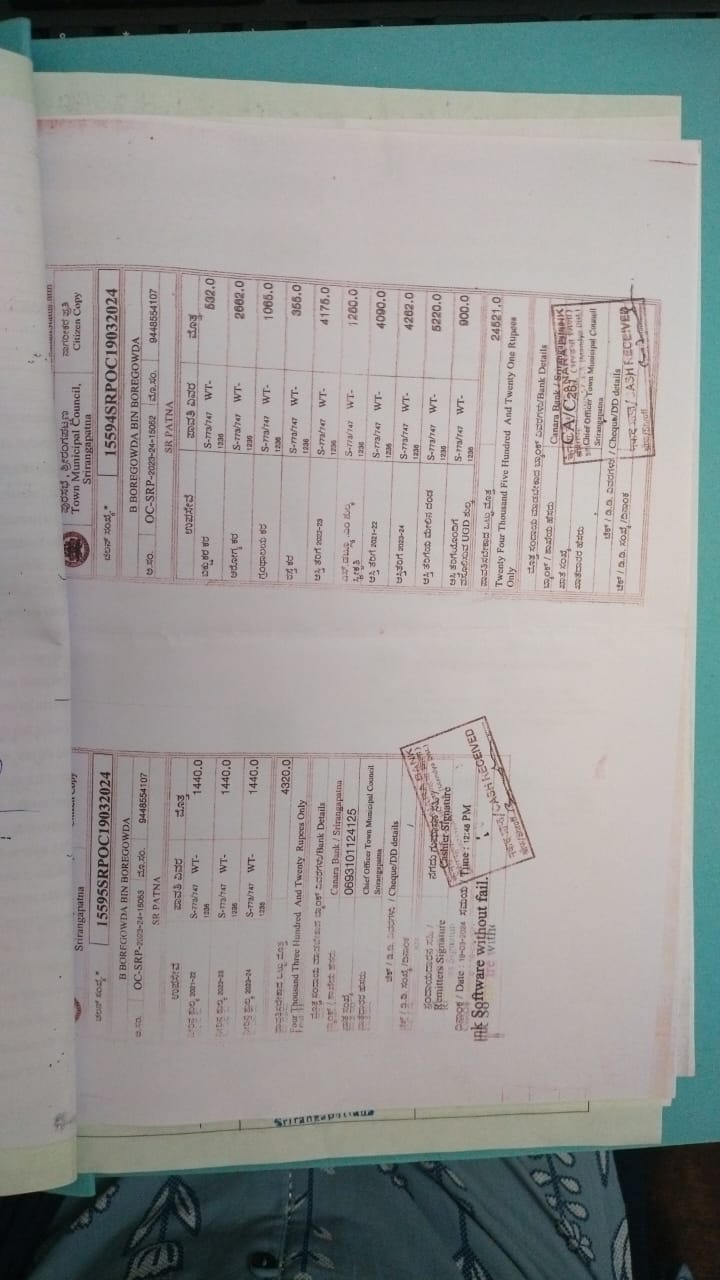 ಪುರಸಭೆ , ಶ್ರೀರಂಗಪಟ್ಟಣ
Town Municipal Council,
Srirangapatna
ನಾಗರೀಕರ ಪ್ರತಿ
Citizen Copy
ಚಲನ್ ಸಂಖ್ಯೆ * 15594SRPOC19032024
B BOREGOWDA BIN BOREGOWDA
ಅ.ಸಂ. OC-SRP-2023-24-15062 ಮೊ.ಸಂ. 9448554107
SR PATNA
ಉಪಸೇವೆ ಪಾವತಿ ವಿವರ ಮೊತ್ತ
S-773/747 WT-1236 532.0
ಆರೋಗ್ಯ ಕರ S-773/747 WT-1236 2662.0
ಗ್ರಂಥಾಲಯ ಕರ S-773/747 WT-1236 1065.0
S-773/747 WT-1236 355.0
ಆಸ್ತಿ ತೆರಿಗೆ 2022-23 S-773/747 WT-1236 4175.0
S-773/747 WT-1236 1260.0
ಆಸ್ತಿ ತೆರಿಗೆ 2021-22 S-773/747 WT-1236 4090.0
ಆಸ್ತಿತೆರಿಗೆ 2023-24 S-773/747 WT-1236 4262.0
ಆಸ್ತಿ ತೆರಿಗೆಯ ಮೇಲಿನ ದಂಡ S-773/747 WT-1236 5220.0
ಆಸ್ತಿ ತೆರಿಗೆಯೊಂದಿಗೆ UGD ಶುಲ್ಕ S-773/747 WT-1236 900.0
ಪಾವತಿಸಬೇಕಾದ ಒಟ್ಟು ಮೊತ್ತ 24521.0
Twenty Four Thousand Five Hundred And Twenty One Rupees
Only
ಮೊತ್ತ ಸಂದಾಯ ಮಾಡಬೇಕಾದ ಬ್ಯಾಂಕ್ ವಿವರಗಳು/Bank Details
ಬ್ಯಾಂಕ್ / ಶಾಖೆಯ ಹೆಸರು Canara Bank / Srirangapatna
ಖಾತೆ ಸಂಖ್ಯೆ
ಖಾತೆದಾರರ ಹೆಸರು Chief Officer Town Municipal Council
Srirangapatna
ಚೆಕ್ / ಡಿ. ಡಿ. ವಿವರಗಳು / Cheque/DD details
ಚೆಕ್ / ಡಿ. ಡಿ. ಸಂಖ್ಯೆ /ದಿನಾಂಕ
CANARA BANK
CASH RECEIVED
Srirangapatna
ಚಲನ್ ಸಂಖ್ಯೆ * 15595SRPOC19032024
B BOREGOWDA BIN BOREGOWDA
ಅ.ಸಂ. OC-SRP-2023-24-15063 ಮೊ.ಸಂ. 9448554107
SR PATNA
ಉಪಸೇವೆ ಪಾವತಿ ವಿವರ ಮೊತ್ತ
ನೀರಿನ ಶುಲ್ಕ 2021-22 S-773/747 WT-1236 1440.0
ನೀರಿನ ಶುಲ್ಕ 2022-23 S-773/747 WT-1236 1440.0
ನೀರಿನ ಶುಲ್ಕ 2023-24 S-773/747 WT-1236 1440.0
ಪಾವತಿಸಬೇಕಾದ ಒಟ್ಟು ಮೊತ್ತ 4320.0
Four Thousand Three Hundred And Twenty Rupees Only
ಮೊತ್ತ ಸಂದಾಯ ಮಾಡಬೇಕಾದ ಬ್ಯಾಂಕ್ ವಿವರಗಳು/Bank Details
ಬ್ಯಾಂಕ್ / ಶಾಖೆಯ ಹೆಸರು Canara Bank / Srirangapatna
ಖಾತೆ ಸಂಖ್ಯೆ 0693101124125
ಖಾತೆದಾರರ ಹೆಸರು Chief Officer Town Municipal Council
Srirangapatna
ಚೆಕ್ / ಡಿ. ಡಿ. ವಿವರಗಳು / Cheque/DD details
ಚೆಕ್ / ಡಿ. ಡಿ. ಸಂಖ್ಯೆ /ದಿನಾಂಕ /
ಸಂದಾಯದಾರರ ಸಹಿ /
Remitters Signature
Cashier Signature
ದಿನಾಂಕ / Date : 19-03-2024 ಸಮಯ / Time : 12:48 PM
Software without fail.
BANK
CASH RECEIVED
Srirangapattana